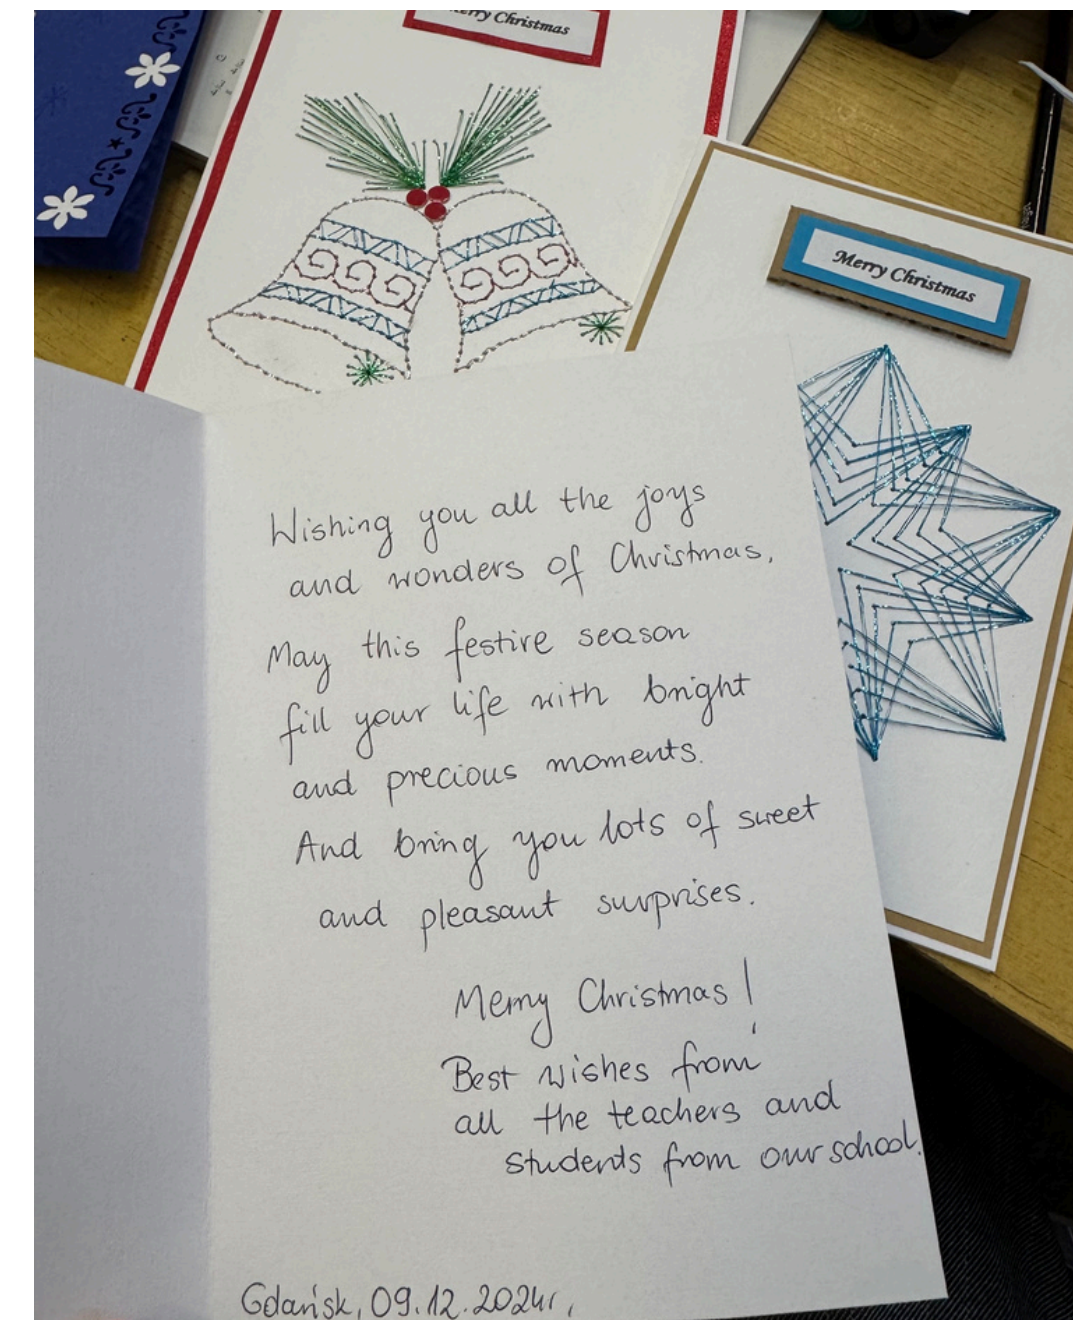 Merry Christmas
Merry Christmas
Wishing you all the joys
and wonders of Christmas.
May this festive season
fill your life with bright
and precious moments.
And bring you lots of sweet
and pleasant surprises.
Merry Christmas!
Best wishes from
all the teachers and
students from our school.
Gdańsk, 09.12.2024r.